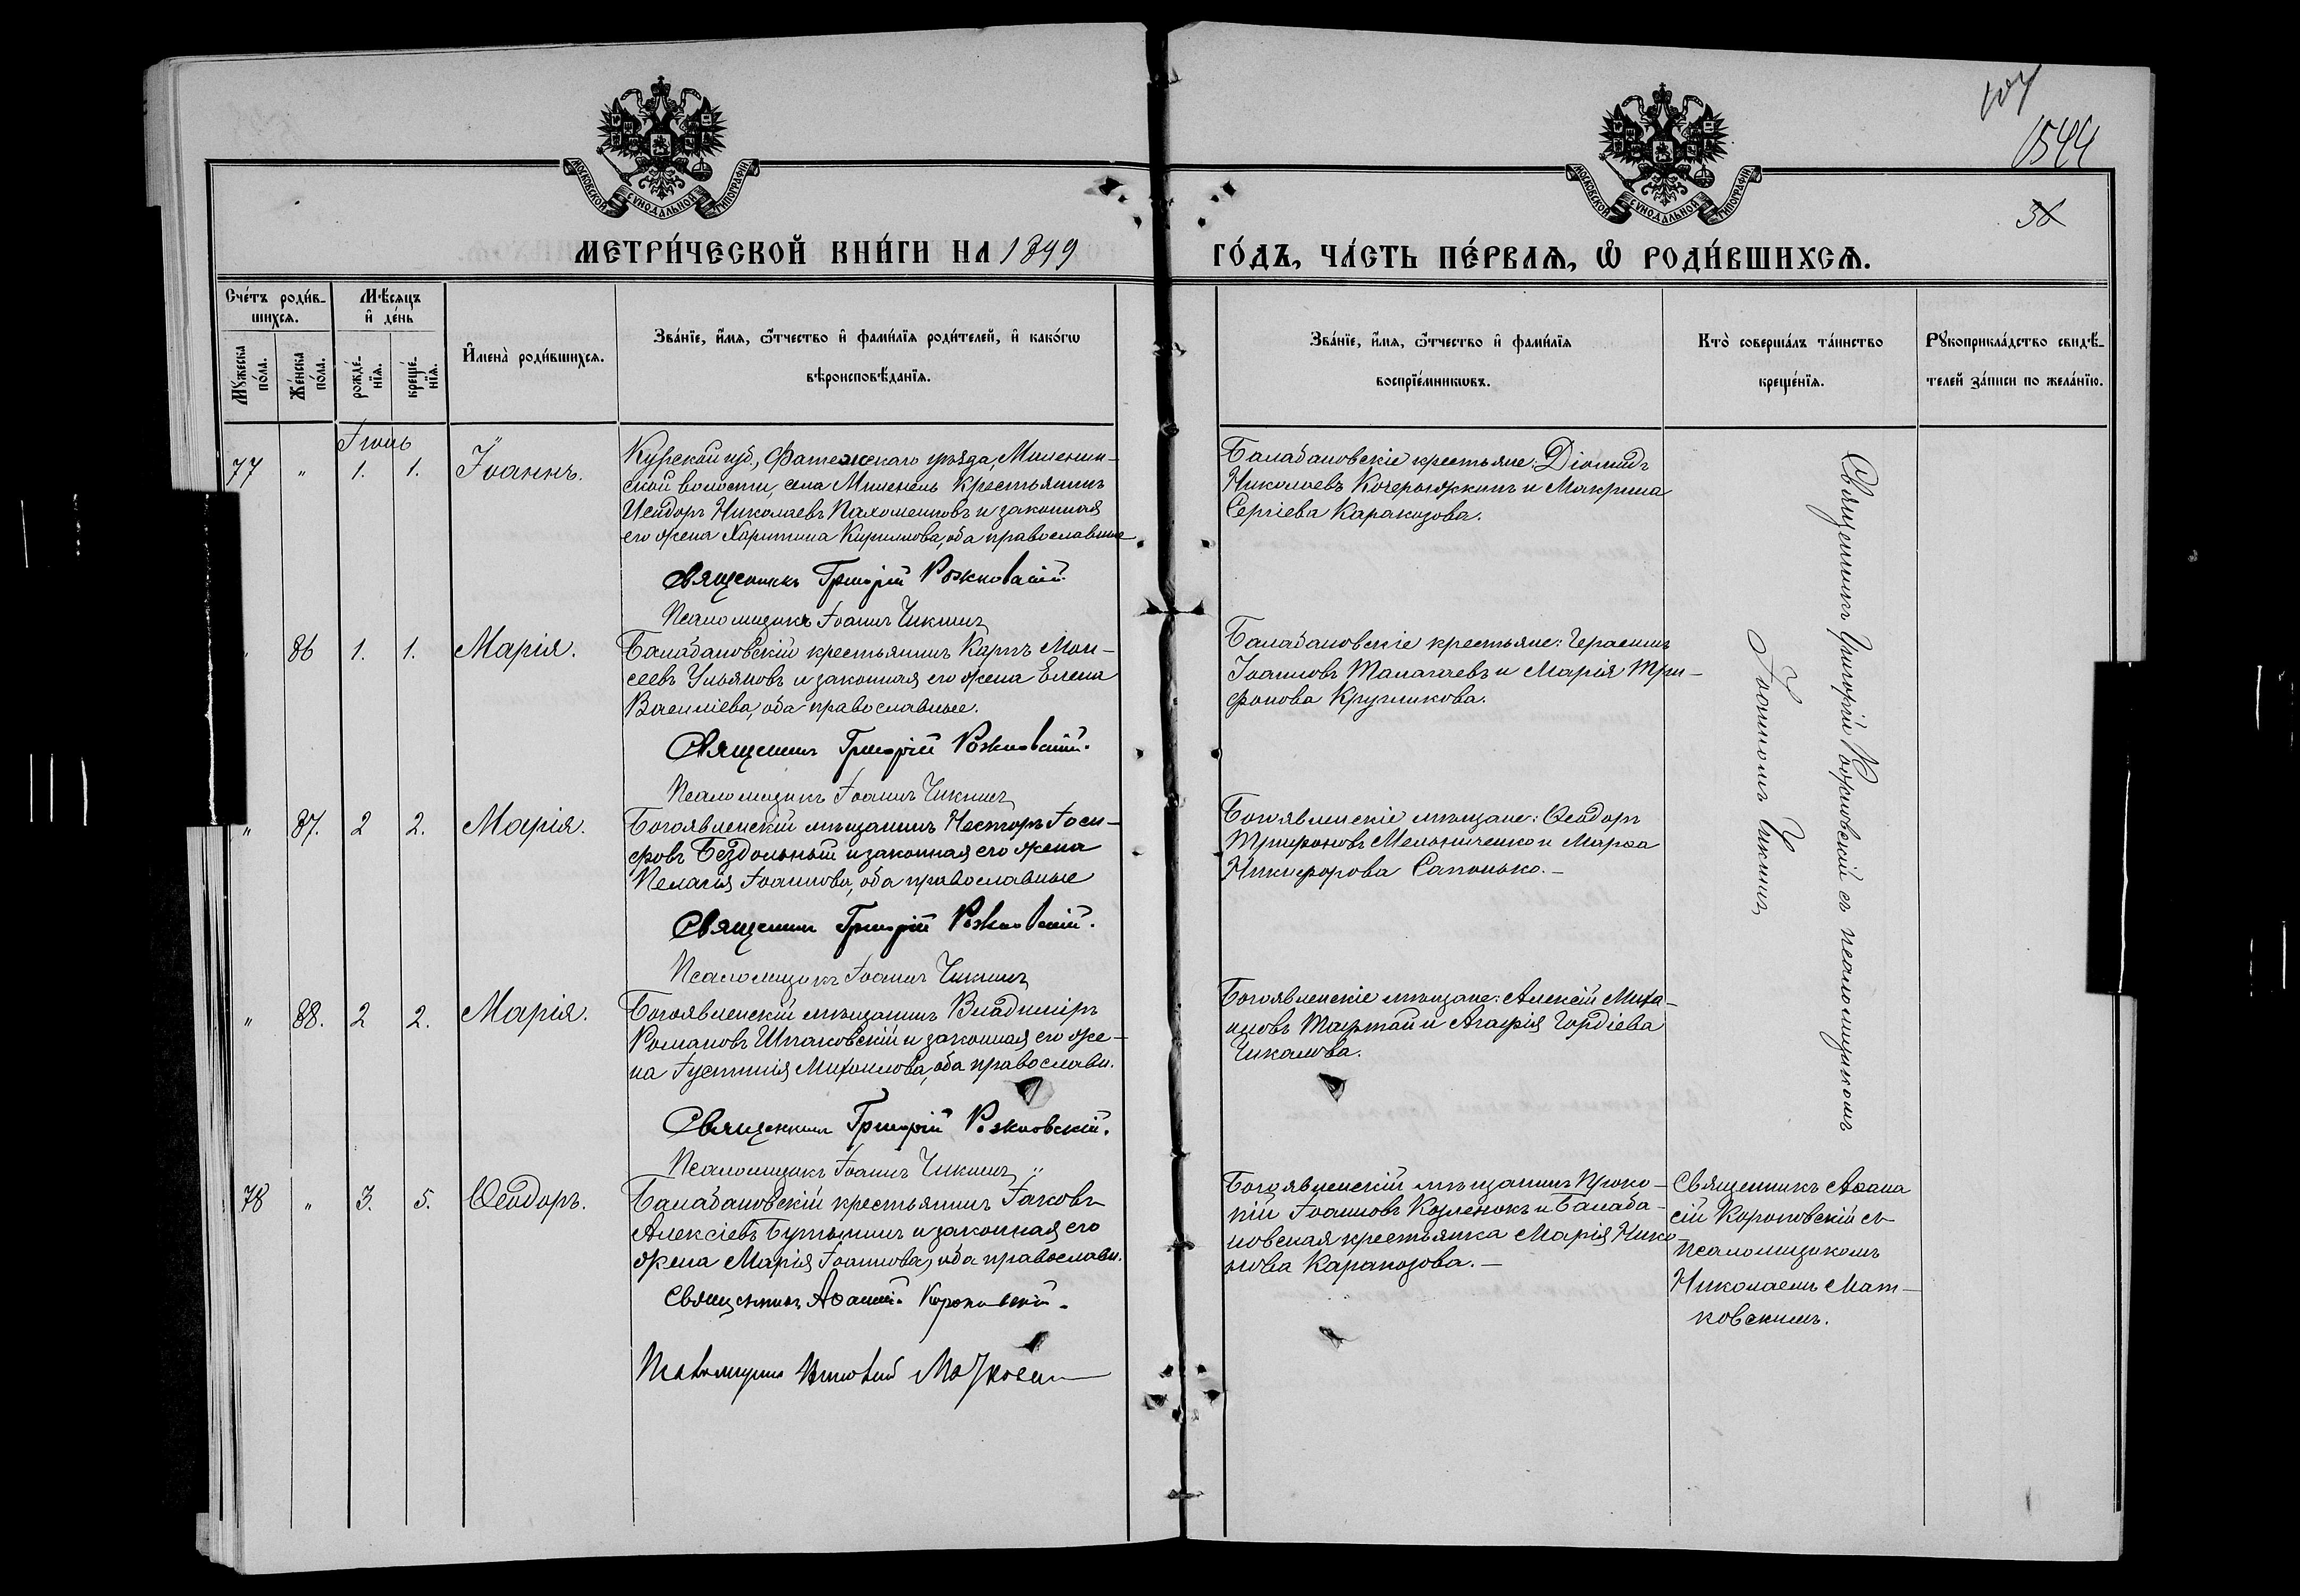 1544
38
МОСКОВСКОЙ СѴНОДАЛЬНОЙ ТИПОГРАФІИ
МОСКОВСКОЙ СѴНОДАЛЬНОЙ ТИПОГРАФІИ
МЕТРИ́ЧЕСКОЙ КНИ́ГИ НА 1899
ГО́ДЪ, ЧА́СТЬ ПЕ́РВАѦ, Ѡ҆ РОДИ́ВШИХСѦ.
Сче́тъ роди́в-
шихсѧ.
Мѣ́сѧцъ
и҆ де́нь
Мꙋ́жеска
по́ла.
Же́нска
по́ла.
рожде́-
нїѧ.
креще́-
нїѧ.
И҆мена̀ роди́вшихсѧ.
Зва́нїе, и҆́мѧ, ѻ҆́тчество и҆ фами́лїѧ роди́телей, и҆ како́гѡ
вѣроисповѣ́данїѧ.
Зва́нїе, и҆́мѧ, ѻ҆́тчество и҆ фами́лїѧ
воспрїе́мникѡвъ.
Кто̀ соверша́лъ та́инство
креще́нїѧ.
Рꙋкоприкла́дство свидѣ́-
телей за́писи по жела́нїю.
77 " 1. 1. Іоаннъ.
Курской губ., Фатежскаго уѣзда, Миленин-
ской волости, села Миленець крестьянинъ
Исидоръ Николаевъ Пахоменковъ и законная
его жена Харитина Кириллова, оба православные
Священникъ Григорій Рожковскій
Псаломщикъ Іоаннъ Чикинъ
Балабановскіе крестьяне: Діомидъ
Николаевъ Кочерыжкинъ и Макрина
Сергіева Каракозова.
Священникъ Григорій Рожковскій съ псаломщикомъ
Іоанномъ Чикинъ
" 86 1. 1. Марія.
Балабановскій крестьянинъ Карпъ Мои-
сеевъ Ульяновъ и законная его жена Елена
Василіева, оба православные.
Священникъ Григорій Рожковскій.
Псаломщикъ Іоаннъ Чикинъ
Балабановскіе крестьяне: Герасимъ
Іоанновъ Талагаевъ и Марія Три-
фонова Кругликова.
" 87. 2 2. Марія.
Богоявленскій мѣщанинъ Несторъ Іоси-
фовъ Бездольный и законная его жена
Пелагія Іоаннова, оба православные
Священникъ Григорій Рожковскій.
Псаломщикъ Іоаннъ Чикинъ
Богоявленскіе мѣщане: Ѳеодоръ
Трифоновъ Мельниченко и Марѳа
Никифорова Сапонько.-
" 88. 2 2. Марія.
Богоявленскій мѣщанинъ Владиміръ
Романовъ Шпаковскій и законная его же-
на Іустинія Михаилова, оба православн.
Священникъ Григорій Рожковскій.
Псаломщикъ Іоаннъ Чикинъ
Богоявленскіе мѣщане: Алексій Миха-
иловъ и Агафія Гордіева
Чикалова.
78 " 3. 5. Ѳеодоръ.
Балабановскій крестьянинъ Іаковъ
Алексіевъ Бутылинъ и законная его
жена Марія Іоаннова, оба православн.
Священникъ Аѳанасій Короповскій.
Псаломщикъ Николай Матковскій
Богоявленскій мѣщанинъ Проко-
пій Іоанновъ Козленокъ и Балаба-
новская крестьянка Марія Нико-
лаева Каракозова.-
Священникъ Аѳана
сій Короповскій съ
псаломщикомъ
Николаемъ Мат-
ковскимъ.